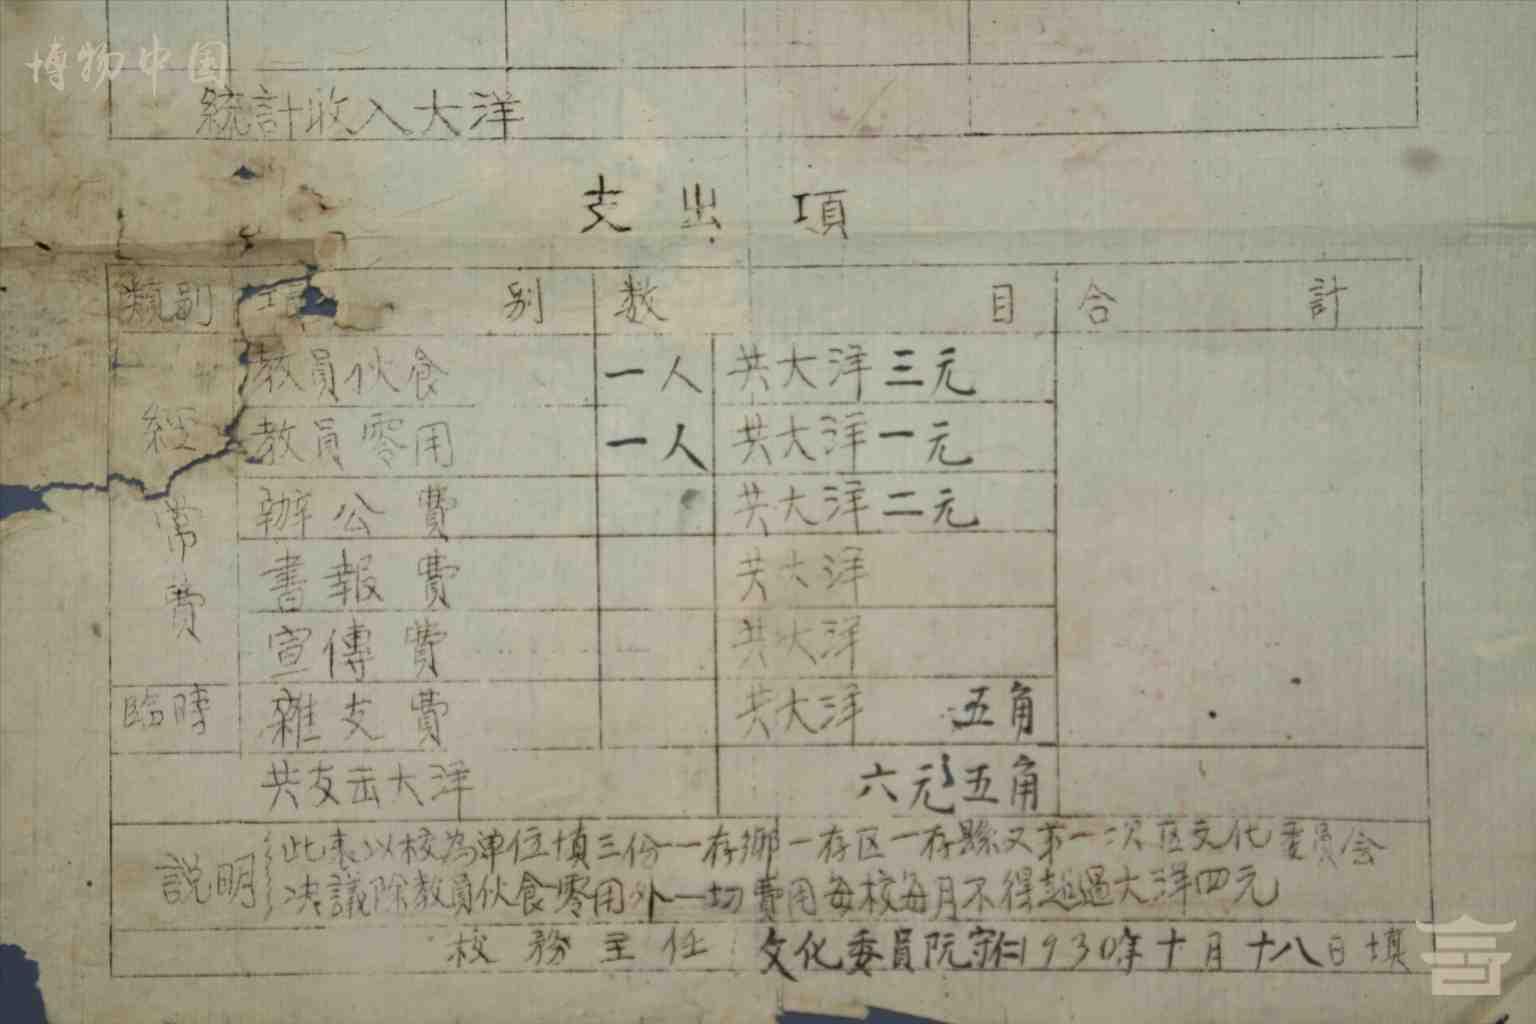 博物中国
統計收入大洋
支出項
類別 項別 数目 合計
教員伙食 一人 共大洋三元
經常費 教員零用 一人 共大洋一元
辦公費 共大洋二元
書報費 共大洋
宣傳費 共大洋
臨時 雜支費 共大洋 五角
共支出大洋 六元五角
説明 此表以校為單位填三份一存鄉一存区一存縣又第一次区文化委員会
决議除教員伙食零用外一切費用每校每月不得超過大洋四元
校務主任 文化委員阮守仁1930年十月十八日填